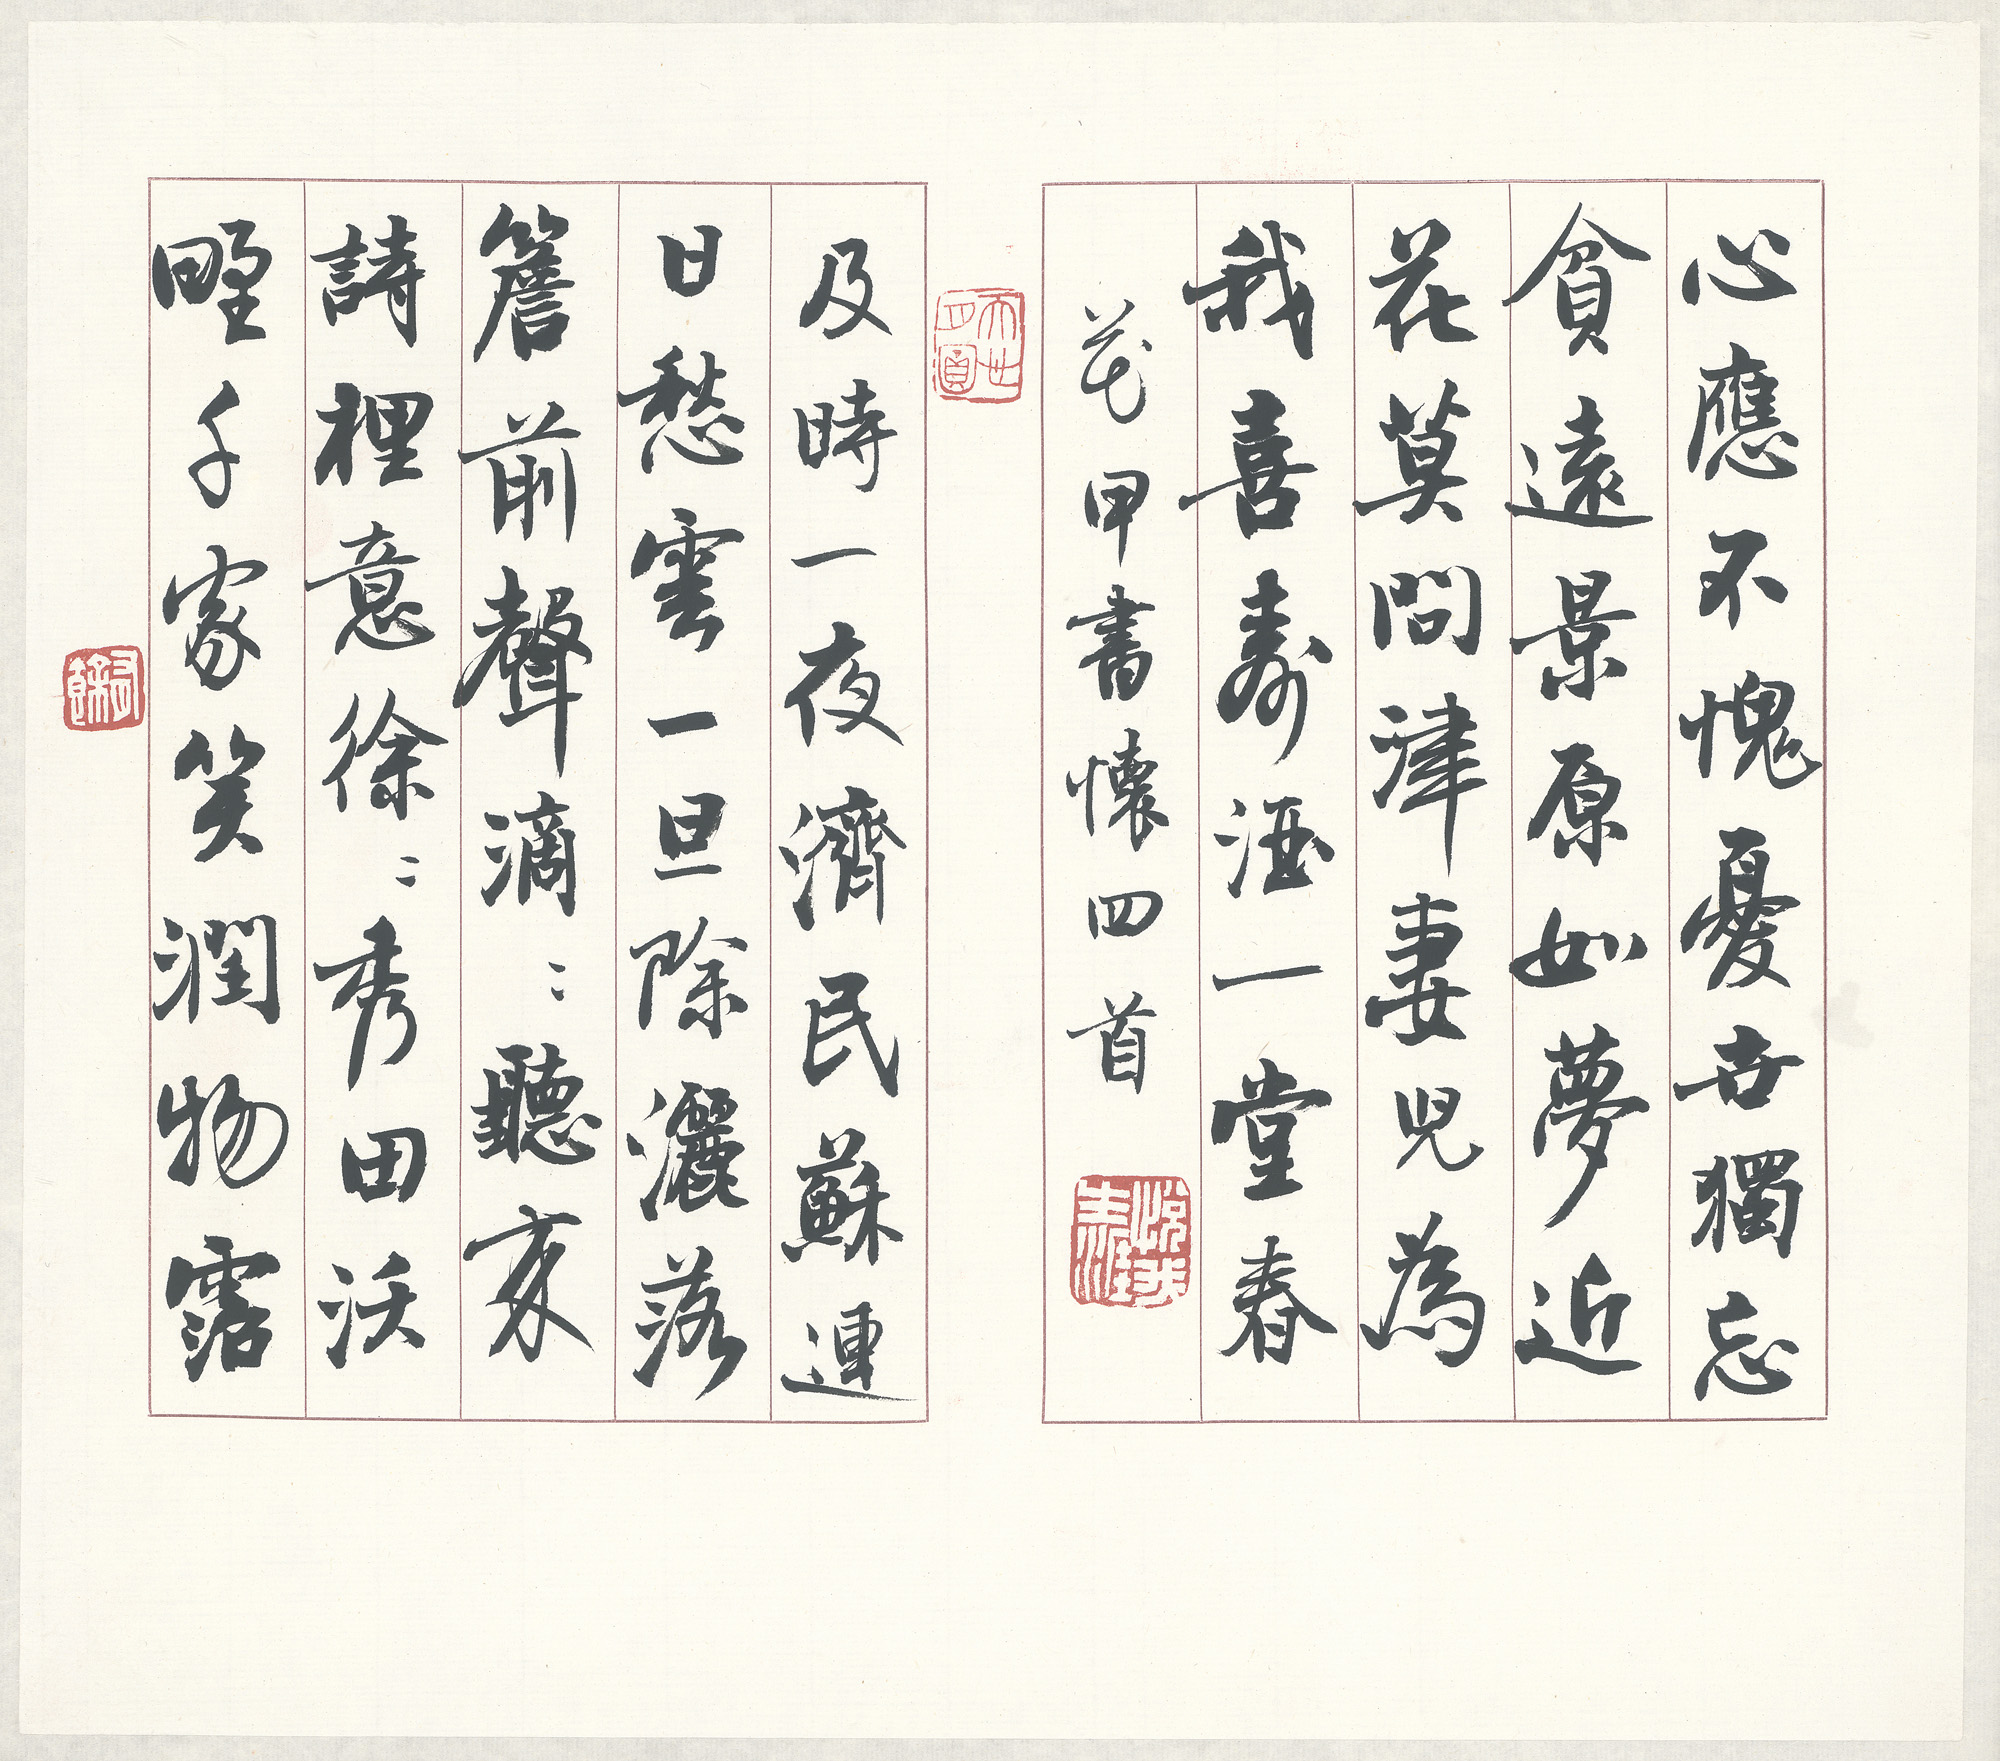 心應不愧憂世獨忘
貧遠景原如夢近
花莫問津妻兒為
我喜壽酒一堂春
花甲書懷四首
及時一夜濟民蘇連
日愁雲一旦除灑落
簷前聲滴〻聽來
詩裡意徐〻秀田沃
野千家笑潤物霑